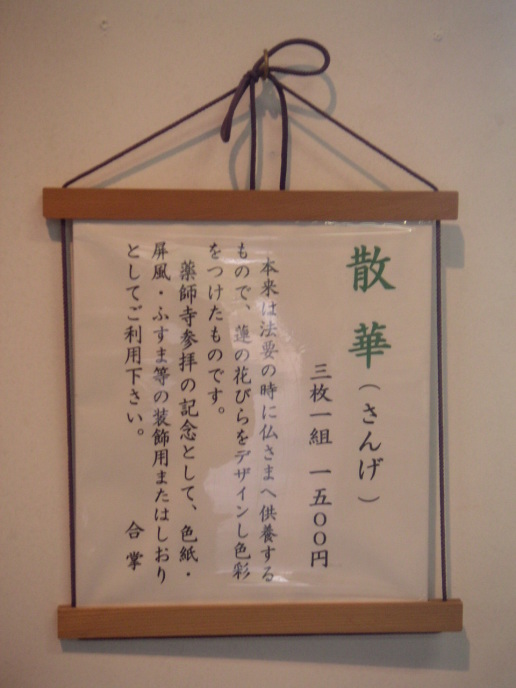 散華（さんげ）
三枚一組 一五〇〇円
本来は法要の時に仏さまへ供養する
もので、蓮の花びらをデザインし色彩
をつけたものです。
薬師寺参拝の記念として、色紙・
屏風・ふすま等の装飾用またはしおり
としてご利用下さい。 合掌